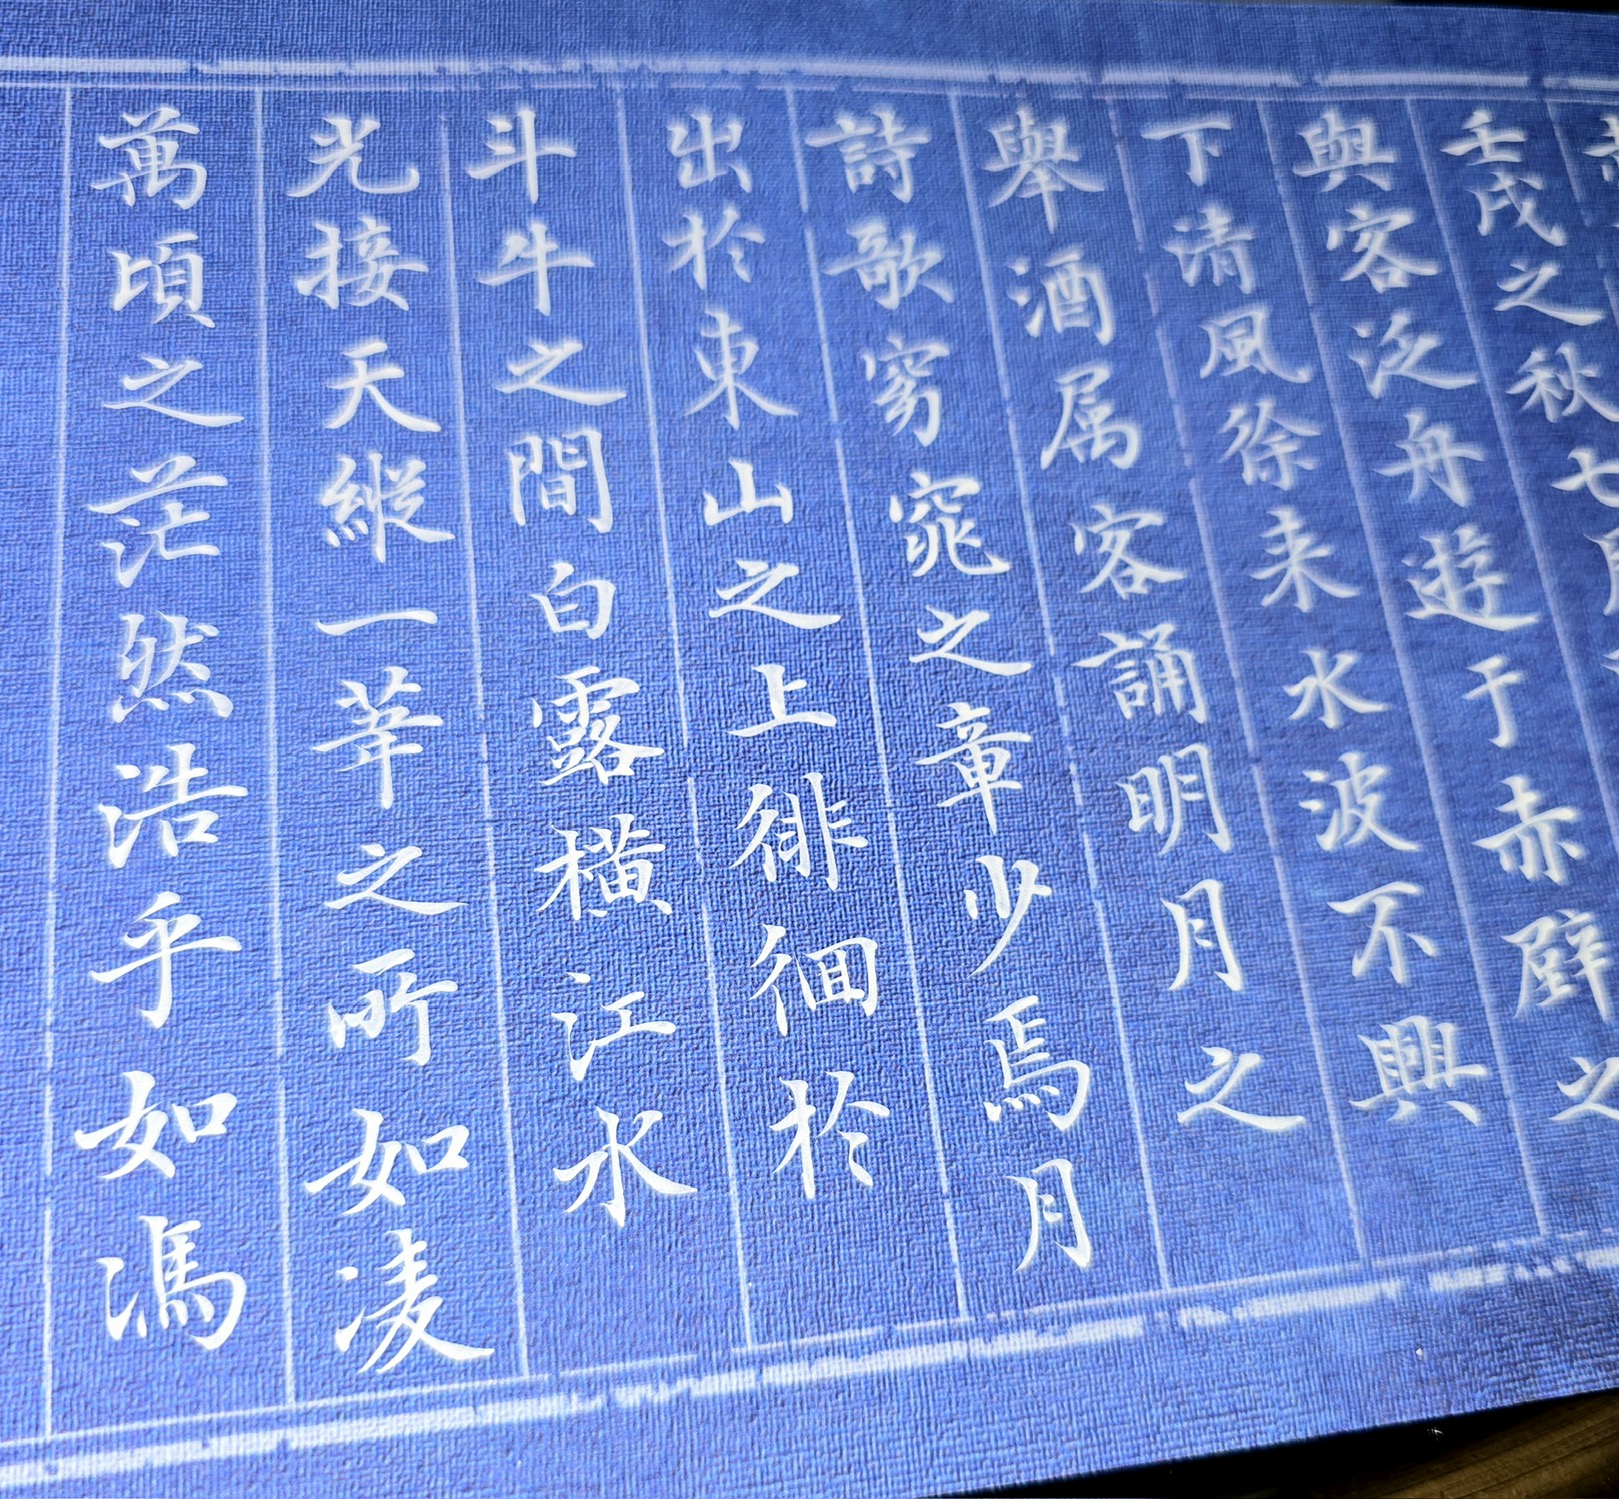 壬戌之秋七
與客泛舟遊于赤壁之
下清風徐来水波不興
舉酒属客誦明月之
詩歌窈窕之章少焉月
出於東山之上徘徊於
斗牛之間白露横江水
光接天縱一葦之所如凌
萬頃之茫然浩乎如馮